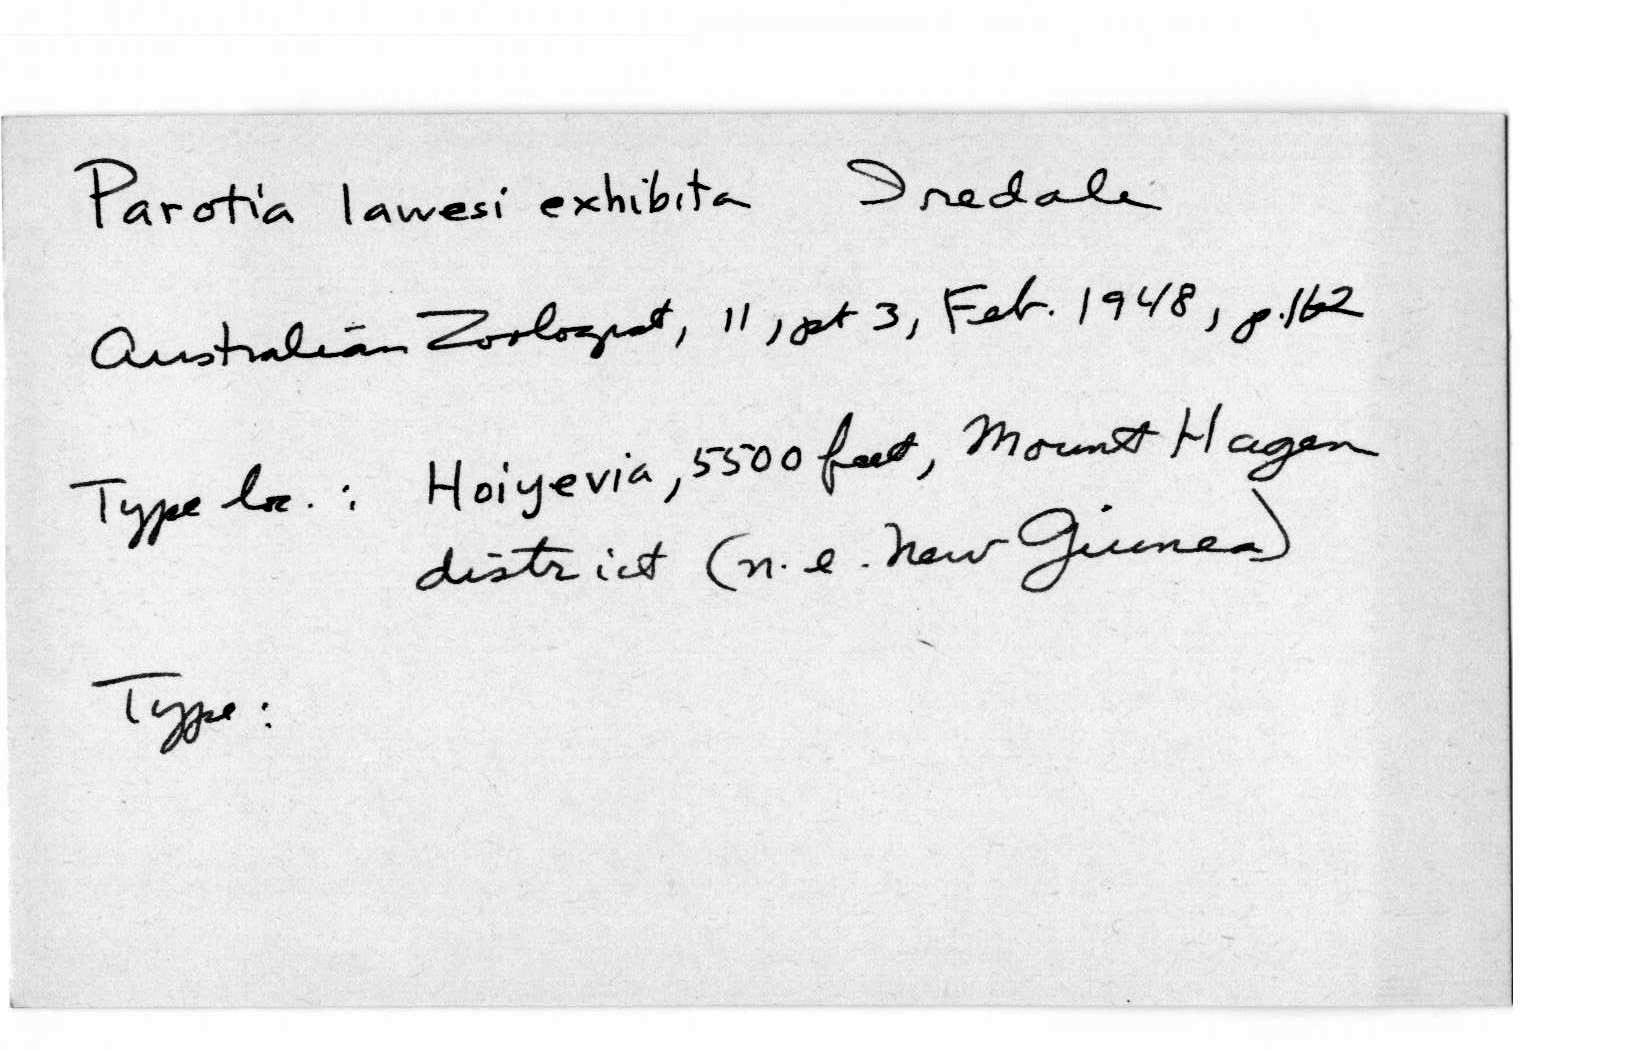 Parotia lawesi exhibita Iredale
Australian Zoologist, 11, pt 3, Feb. 1948, p.162
Type loc.: Hoiyevia, 5500 feet, Mount Hagen
district (n.e. New Guinea)
Type: